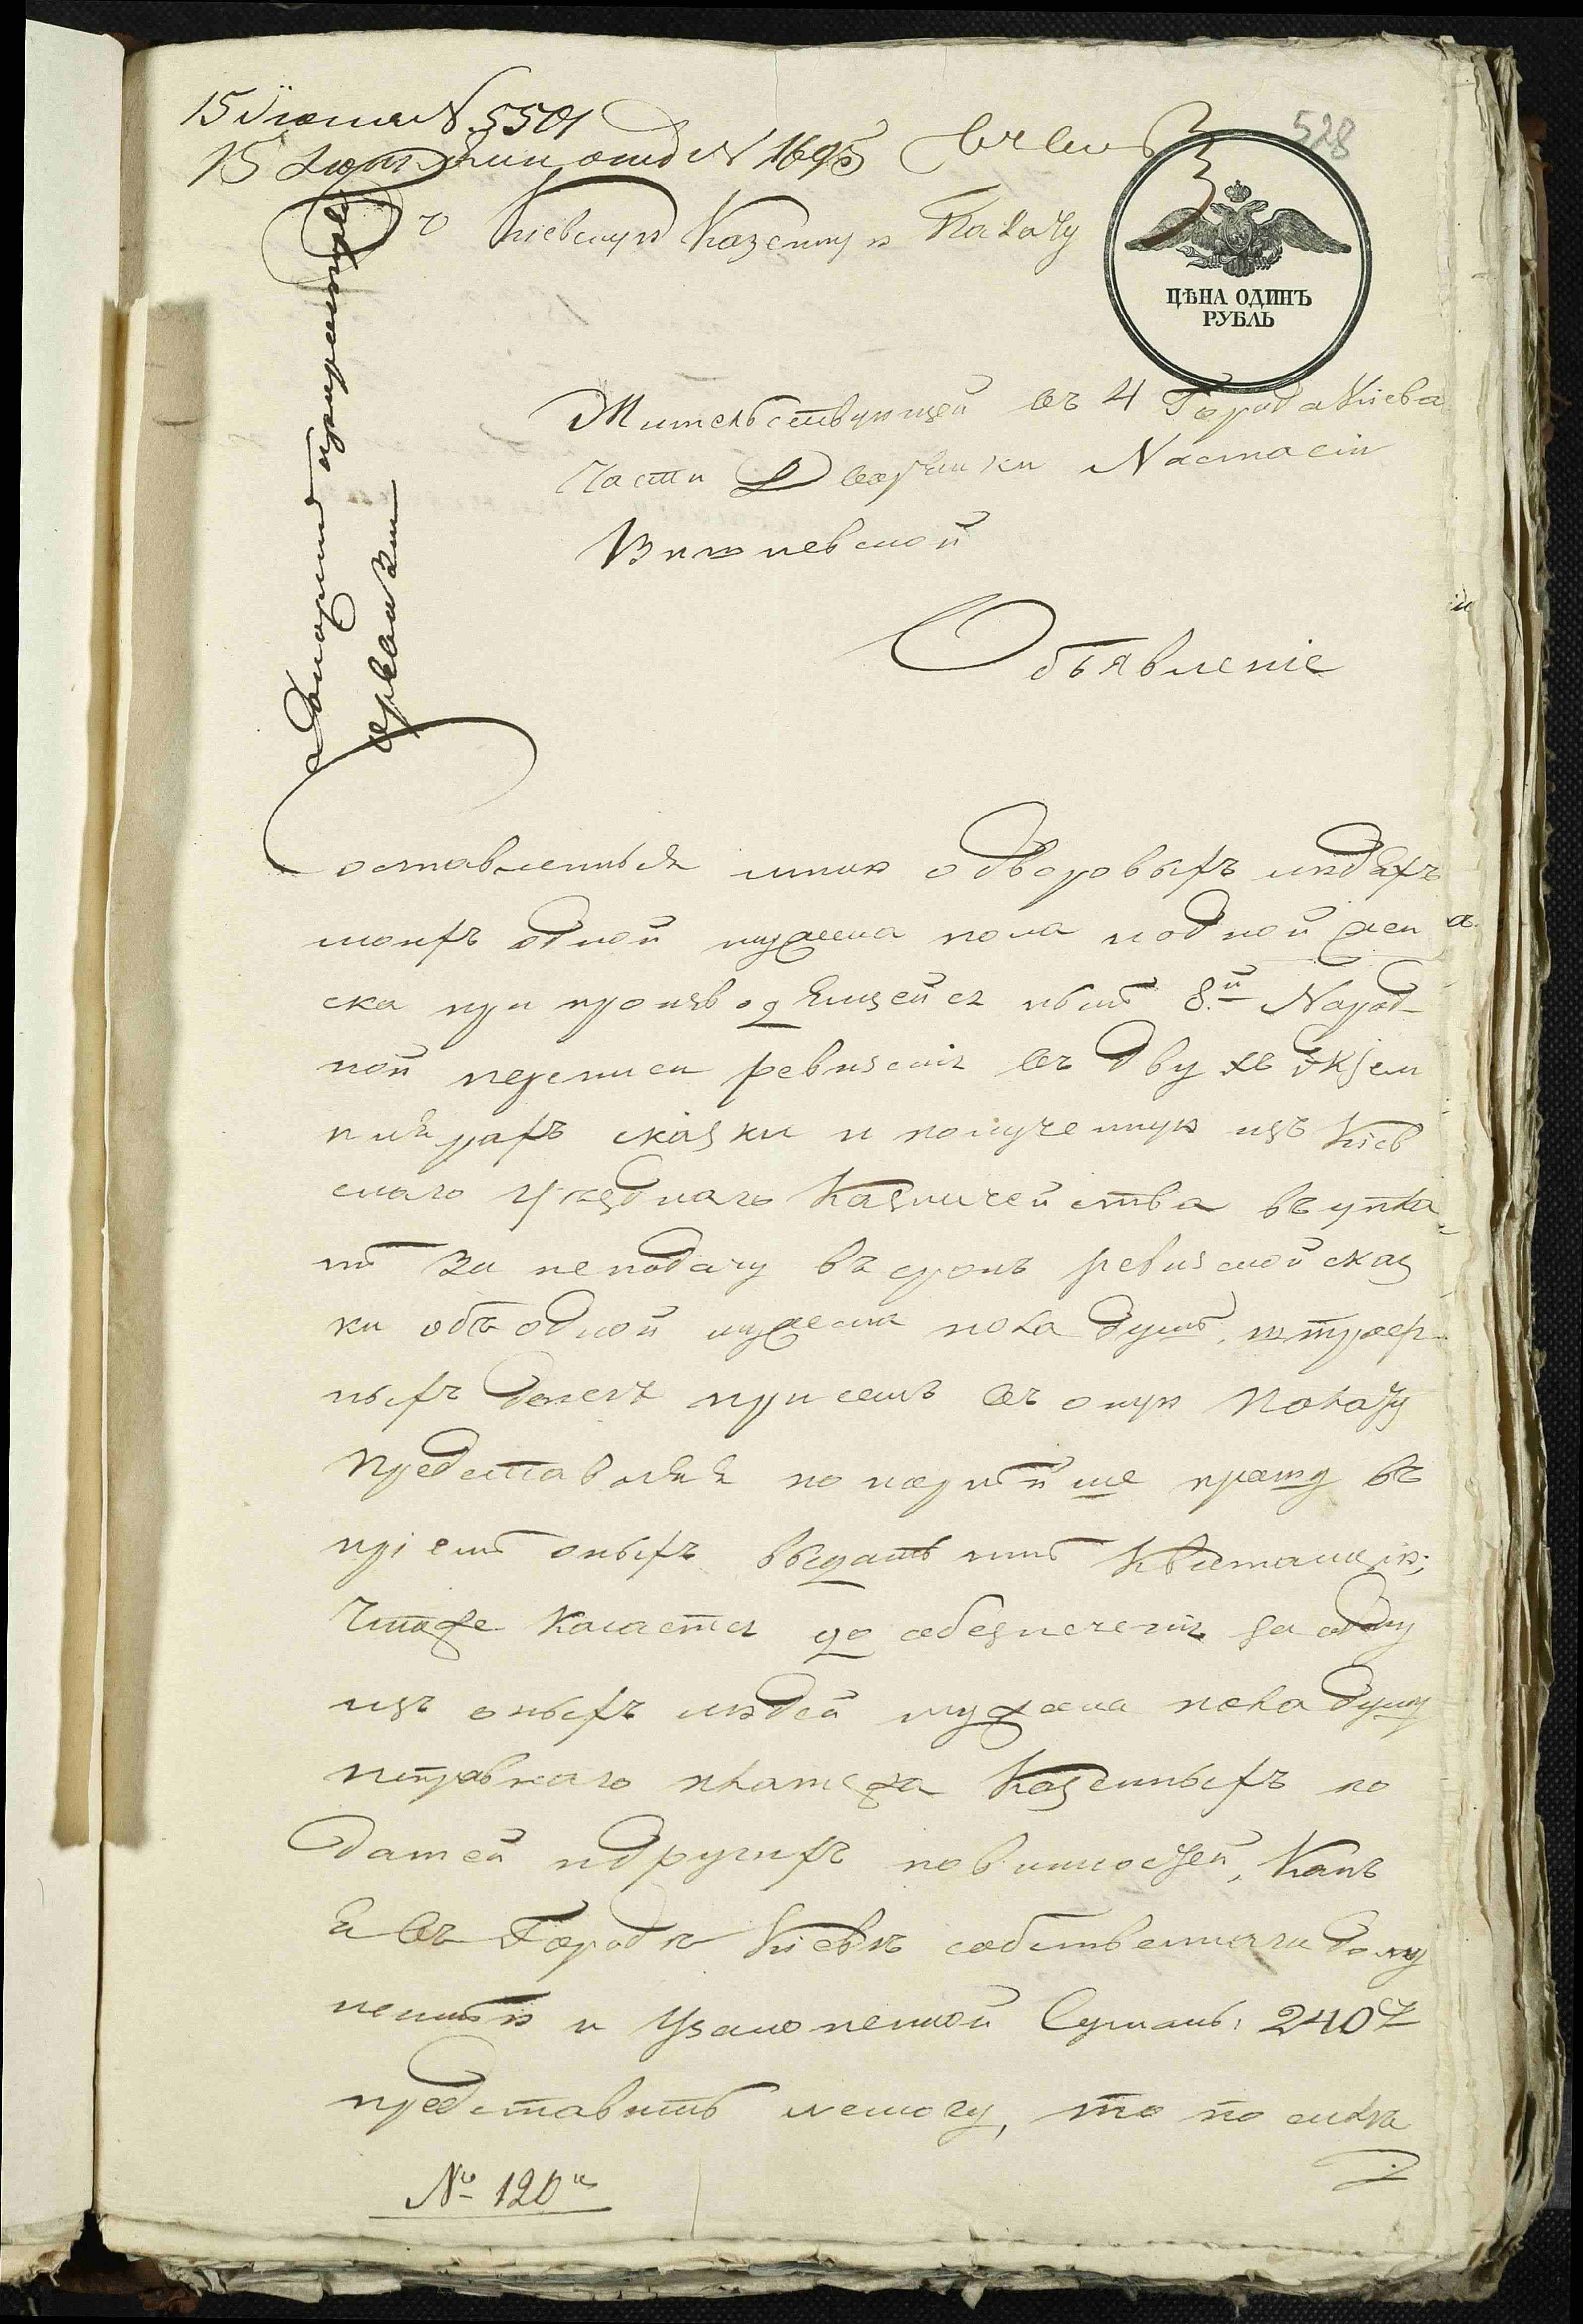 15 Июня N. 5501
15 Июня отд N 1695
528
Въ Кіевскую Казенную Палату
ЦѢНА ОДИНЪ
РУБЛЬ
Жительствующей въ 4 Города Кіева
Части Дворянки Настасіи
Вишневской
Объявленіе
Составленныя мною о дворовыхъ людяхъ
моихъ одной мужеска пола и одной жен
ска при производящейся нынѣ 8.й Народ-
ной переписи ревизскія въ двухъ Экзем
плярахъ сказки и полученную изъ Кіев
скаго Уѣзднаго Казначейства въ упла
тѣ за неподачу въ срокъ ревизской сказ
ки объ одной мужеска пола душѣ, штраф
ныхъ денегъ при семъ въ оную Палату
представляя покорнѣйше прошу въ
пріемѣ оныхъ выдать мнѣ Квитанцію;
Чтоже касается до обезпеченія за одну
изъ оныхъ людей мужеска пола душу
исправнаго платежа Казенныхъ по
датей и другихъ повинностей, Какъ
я въ Городѣ Кіевѣ собственнаго дому
неимѣю и Узаконенной Суммы: 240 р
представить немогу, то по силѣ
№ 120й